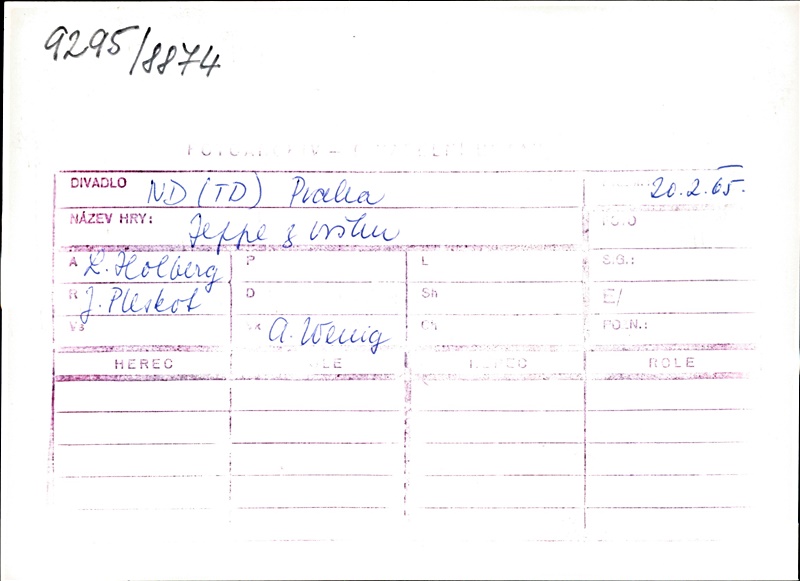 9295/8874
DIVADLO ND (TD) Praha 20.2.65.
NÁZEV HRY: Jeppe z vršku
A L. Holberg P L S.G.:
R J. Pleskot D Sh E/
Vš A. Wenig Ch
HEREC HEREC ROLE